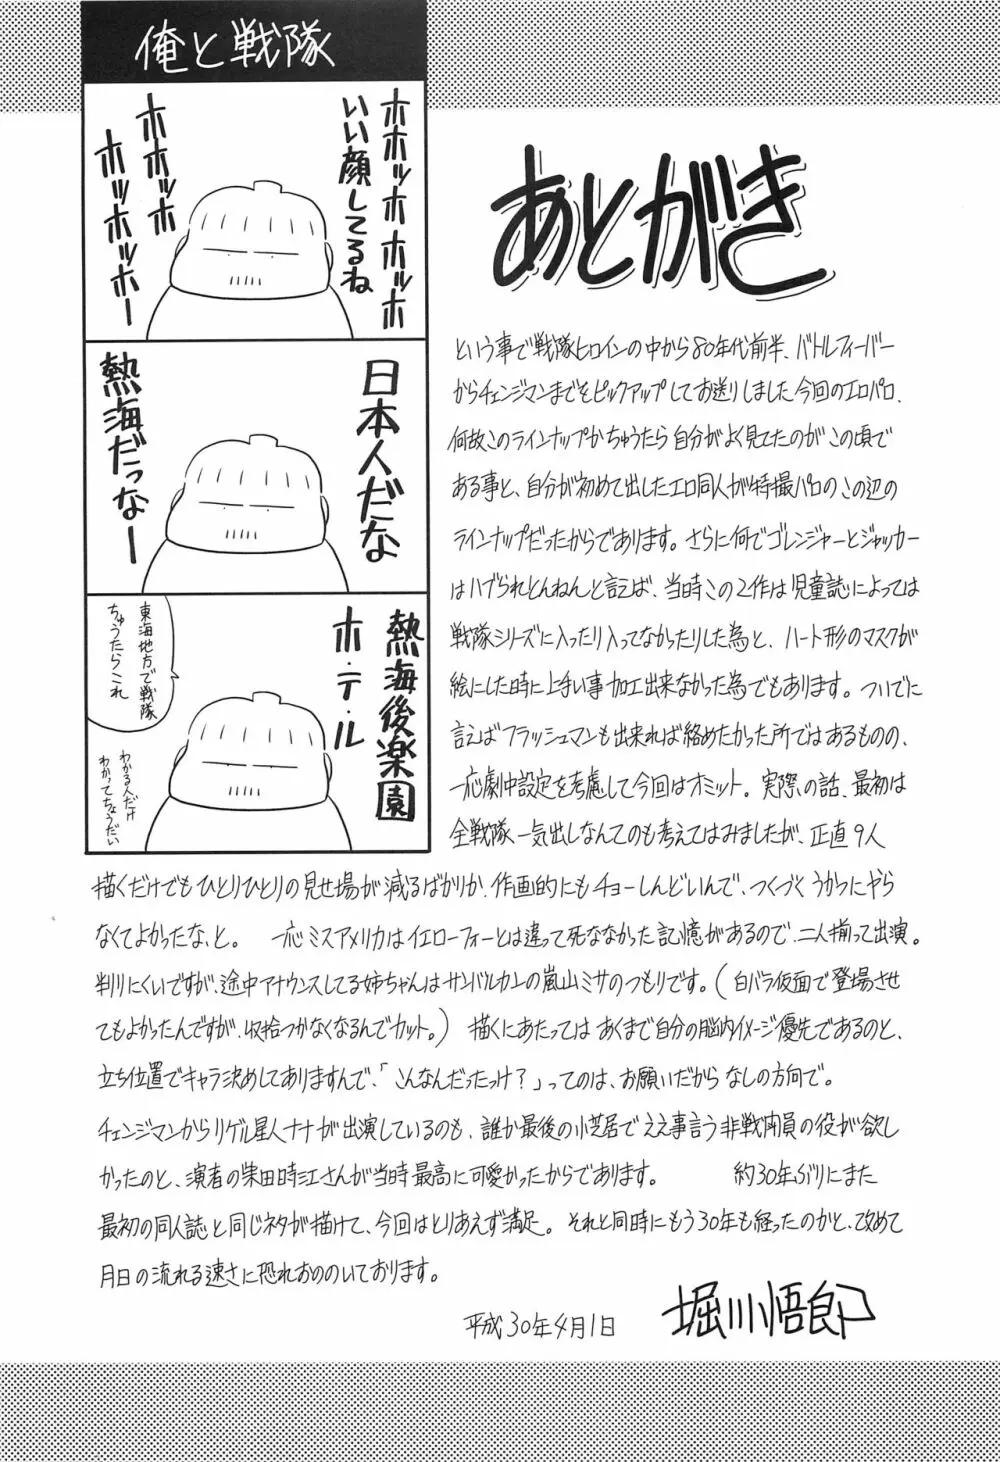 俺と戦隊
ホホッホ ホッホ
いい顔してるね
ホホッホ
ホッホッホー
日本人だな
熱海だっなー
熱海後楽園
ホ・テ・ル
東海地方で戦隊
ちゅうたらこれ
わかる人だけ
わかってちょうだい
あとがき
という事で戦隊ヒロインの中から80年代前半、バトルフィーバー
からチェンジマンまでをピックアップしてお送りしました今回のエロパロ、
何故このラインナップかちゅうたら自分がよく見てたのがこの頃で
ある事と、自分が初めて出したエロ同人が特撮パロのこの辺の
ラインナップだったからであります。さらに何でゴレンジャーとジャッカー
はハブられとんねんと言えば、当時この2作は児童誌によっては
戦隊シリーズに入ったり入ってなかったりした為と、ハート形のマスクが
絵にした時に上手い事加工出来なかった為でもあります。ついでに
言えばフラッシュマンも出来れば絡めたかった所ではあるものの、
一応劇中設定を考慮して今回はオミット。実際の話、最初は
全戦隊一気出しなんてのも考えてはみましたが、正直9人
描くだけでもひとりひとりの見せ場が減るばかりか、作画的にもチョーしんどいんで、つくづくうかつにやら
なくてよかったな、と。 一応ミスアメリカはイエローフォーとは違って死ななかった記憶があるので、二人揃って出演。
判りにくいですが、途中アナウンスしてる姉ちゃんはサンバルカンの嵐山ミサのつもりです。(白バラ仮面で登場させ
てもよかったんですが、収拾つかなくなるんでカット。) 描くにあたってはあくまで自分の脳内イメージ優先であるのと、
立ち位置でキャラ決めしてありますんで、「こんなんだったっけ?」ってのは、お願いだからなしの方向で。
チェンジマンからリゲル星人ナナが出演しているのも、誰か最後の小芝居でええ事言う非戦闘員の役が欲し
かったのと、演者の柴田時江さんが当時最高に可愛かったからであります。 約30年ぶりにまた
最初の同人誌と同じネタが描けて、今回はとりあえず満足。それと同時にもう30年も経ったのかと、改めて
月日の流れる速さに恐れおののいております。
平成30年4月1日 堀川悟郎